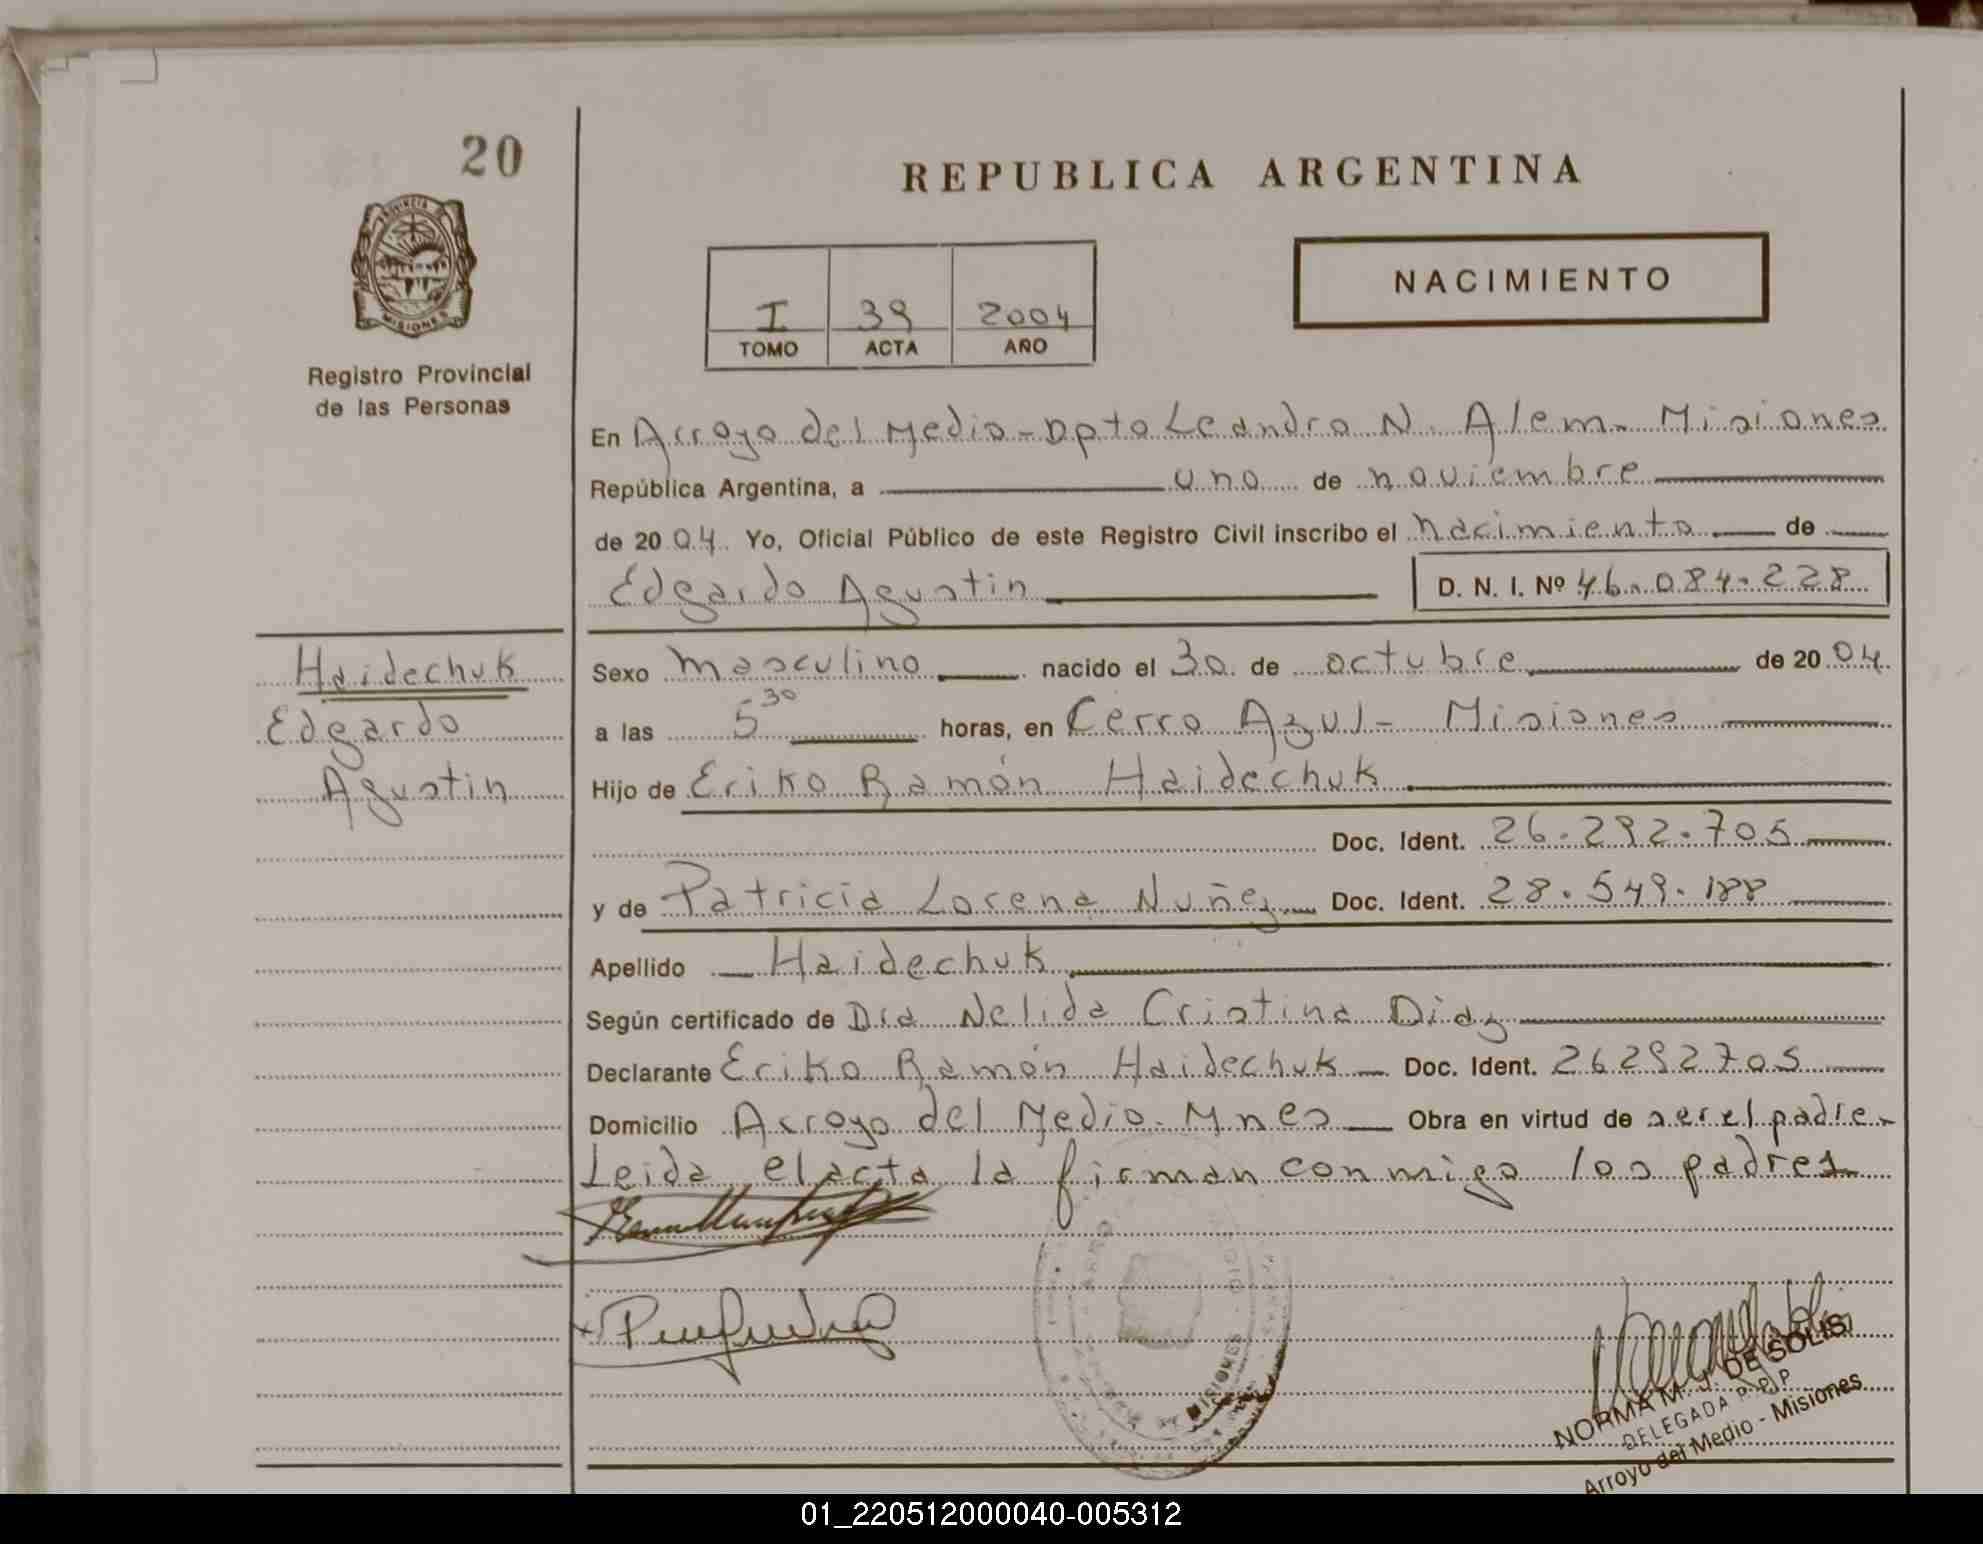 20
REPUBLICA ARGENTINA
PROVINCIA DE
MISIONES
Registro Provincial
de las Personas
NACIMIENTO
I 39 2004
TOMO ACTA AÑO
En Arroyo del Medio - Dpto Leandro N. Alem - Misiones
República Argentina, a uno de noviembre
de 2004. Yo, Oficial Público de este Registro Civil inscribo el nacimiento de
Edgardo Agustin D. N. I. Nº 46.084.228
Haidechuk
Edgardo
Agustin
Sexo masculino nacido el 30 de octubre de 2004
a las 5 30 horas, en Cerro Azul - Misiones
Hijo de Eriko Ramón Haidechuk
Doc. Ident. 26.292.705
y de Patricia Lorena Nuñez Doc. Ident. 28.549.188
Apellido Haidechuk
Según certificado de Dra Nelida Cristina Diaz
Declarante Eriko Ramón Haidechuk Doc. Ident. 26292705
Domicilio Arroyo del Medio - Mnes Obra en virtud de ser el padre-
Leida el acta la firman conmigo los padres
MISIONES
NORMA M. J. DE SOLIS
DELEGADA R.P.P
Arroyo del Medio - Misiones
01_220512000040-005312